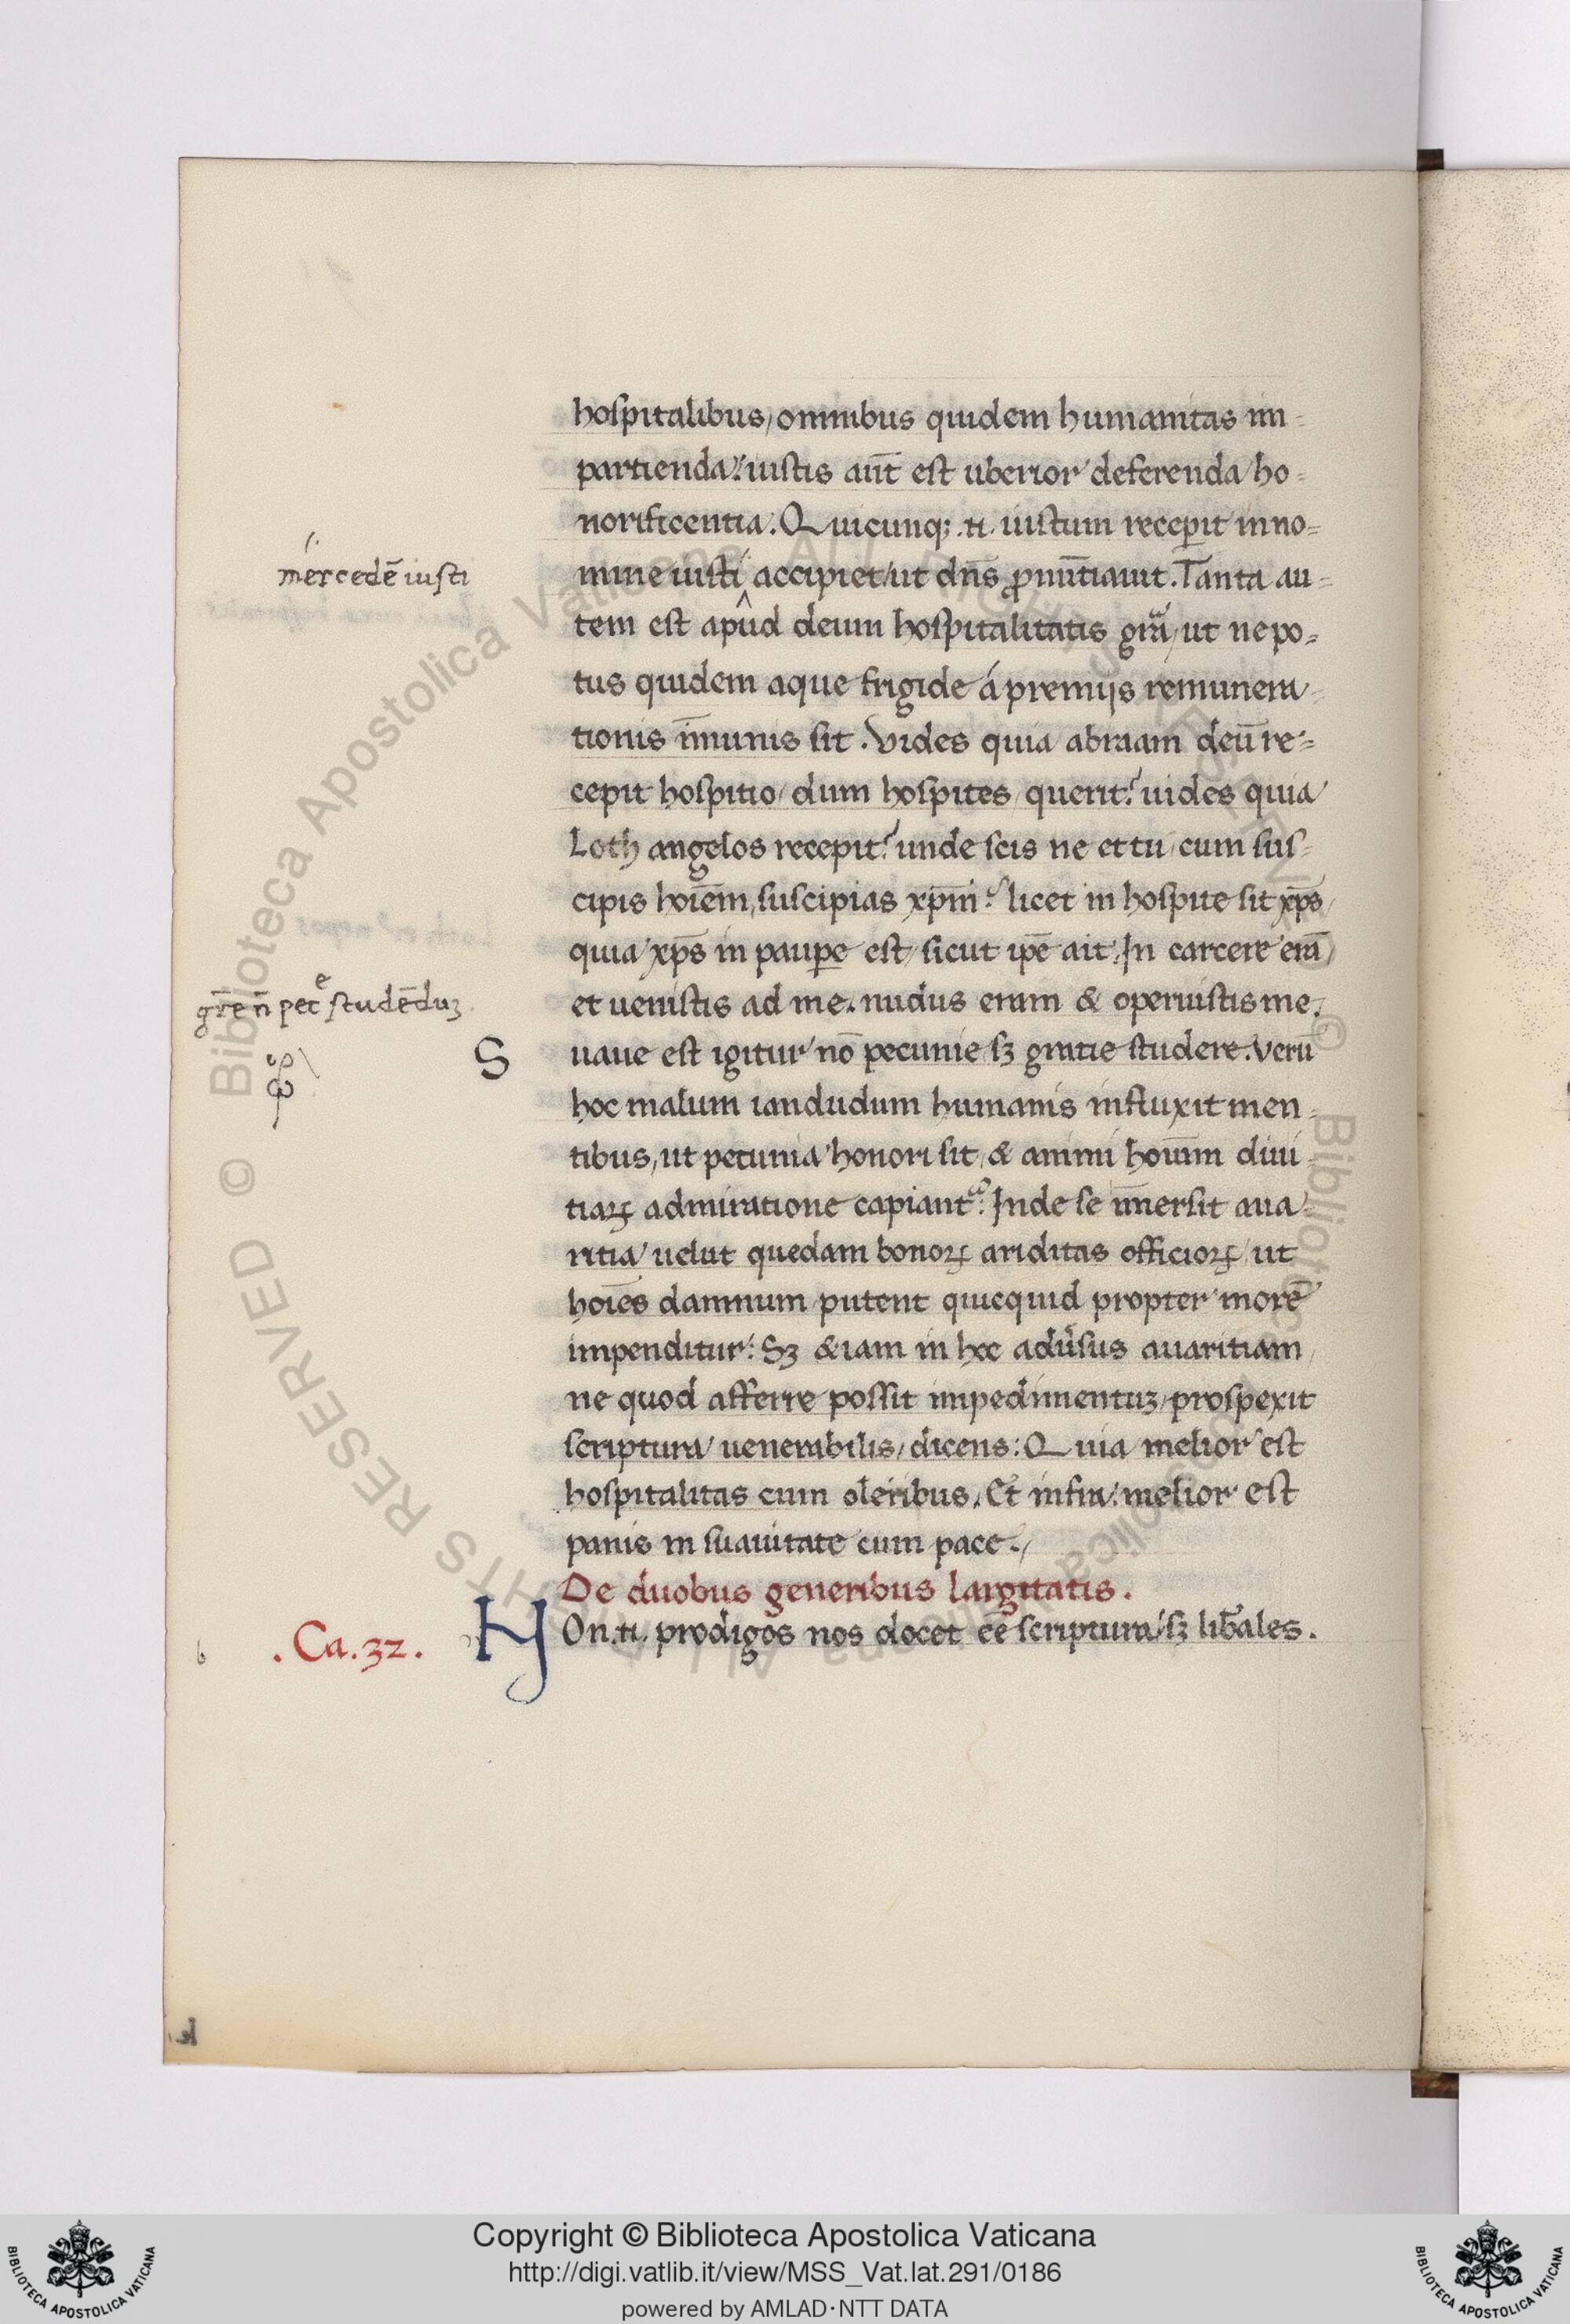 hospitalibus, omnibus quidem humanitas im-
partienda: iustis aūt est uberior deferenda ho-
norificentia. Quicunq; .n. iustum receꝑit in no-
mercedē iusti
mine iusti accipiet, ut dn̄s ꝓnūtiauit. Tanta au-
tem est apud deum hospitalitatis gr̄a, ut ne po-
tus quidem aque frigide á premijs remunera-
tionis īmunis sit. Vides quia abraam deū re-
cepit hospitio, dum hospites querit? uides quia
Loth angelos recepit? unde scis ne et tu, cum sus-
cipis hoīem, suscipias xp̄m? licet in hospite sit xp̄s,
quia xp̄s in pauꝑe est, sicut ip̄e ait. In carcere erā,
gr̄e n̄ pec̄e studēduꝫ
et uenistis ad me. nudus eram & operuistis me.
Suaue est igitur nō pecunie sꝫ gratie studere. Verū
hoc malum iandudum humanis influxit men-
tibus, ut pecunia honori sit, & animi hoīum diui-
tiaꝝ admiratione capiant². Inde se īmersit aua-
ritia, uelut quedam bonoꝝ ariditas officioꝝ, ut
hoīes damnum putent quicquid propter morē
impenditur: Sꝫ &iam in hoc adūsus auaritiam,
ne quod afferre possit impedimentuꝫ, prospexit
scriptura uenerabilis, dicens: Quia melior est
hospitalitas cum oleribus, Et infra: melior est
panis in suauitate cum pace.
De duobus generibus largitatis.
.Ca. 32.
NOn .n. prodigos nos docet eē scriptura, sꝫ lib̄ales.
Copyright © Biblioteca Apostolica Vaticana
http://digi.vatlib.it/view/MSS_Vat.lat.291/0186
powered by AMLAD·NTT DATA
BIBLIOTECA APOSTOLICA VATICANA
BIBLIOTECA APOSTOLICA VATICANA